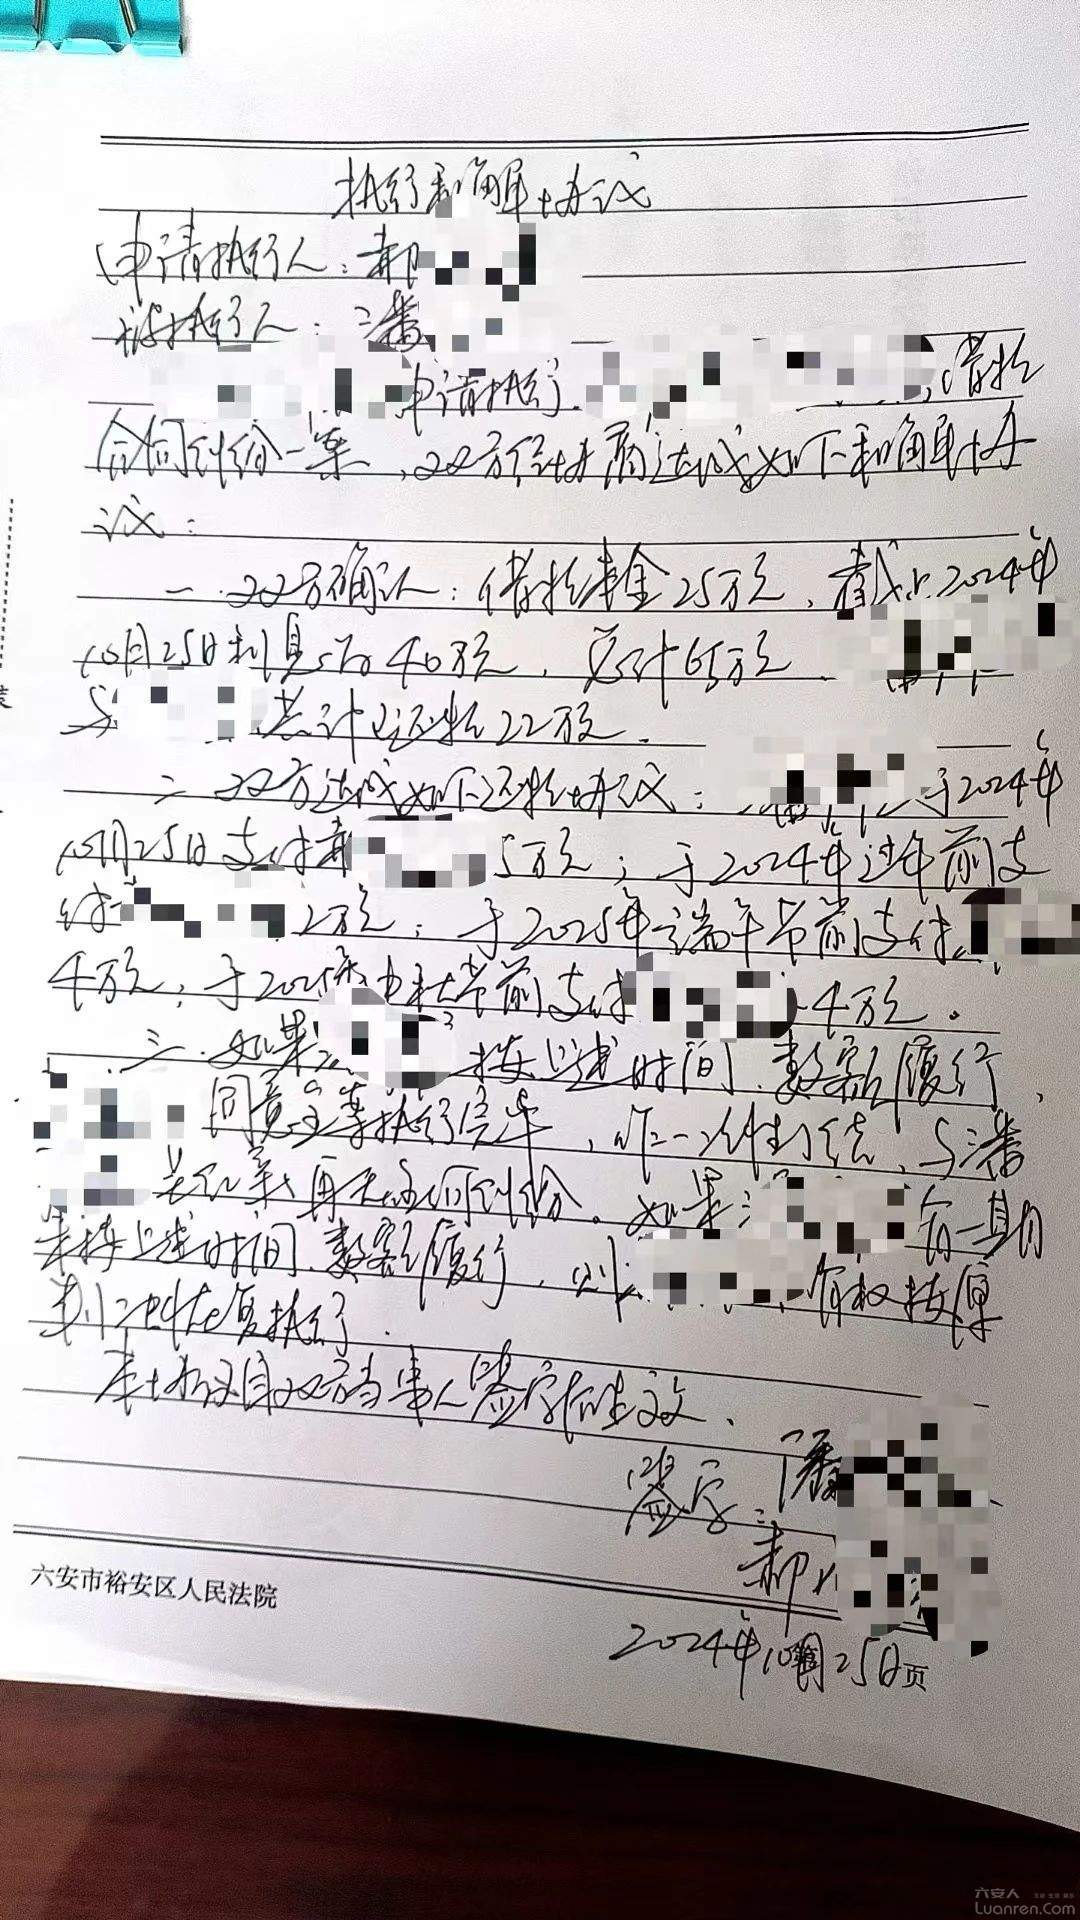 执行和解协议
申请执行人：郝
被执行人：潘
申请执行，借款
合同纠纷一案，双方经协商达成如下和解协
议：
一.双方确认：借款本金25万元，截止2024年
10月25日利息为40万元，总计65万元
与 共计还款22万元.
二 双方达成如下还款协议： 于2024年
10月25日支付郝 5万元；于2024年过年前支
付 2万元；于2025年端午节前支付
4万元；于2025年中秋节前支付 4万元。
三.如果 按上述时间、数额履行，
同意全案执行完毕，作一次性了结，与潘
再无任何纠纷。如果 有一期
未按上述时间、数额履行，则 有权按原
判决书恢复执行.
本协议自双方当事人签字后生效.
签字：潘
郝
六安市裕安区人民法院
2024年10月25日页
六安人
Luanren.Com